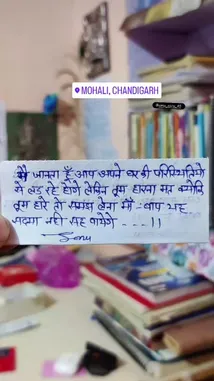 MOHALI, CHANDIGARH
मैं जानता हूँ आप अपने घर की परिस्थितियो
से लड़ रहे होंगे लेकिन तुम हारना मत क्योंकि
तुम हारे तो समझ लेना माँ-बाप यह
सदमा नही सह पायेंगे ----।।
Sonu